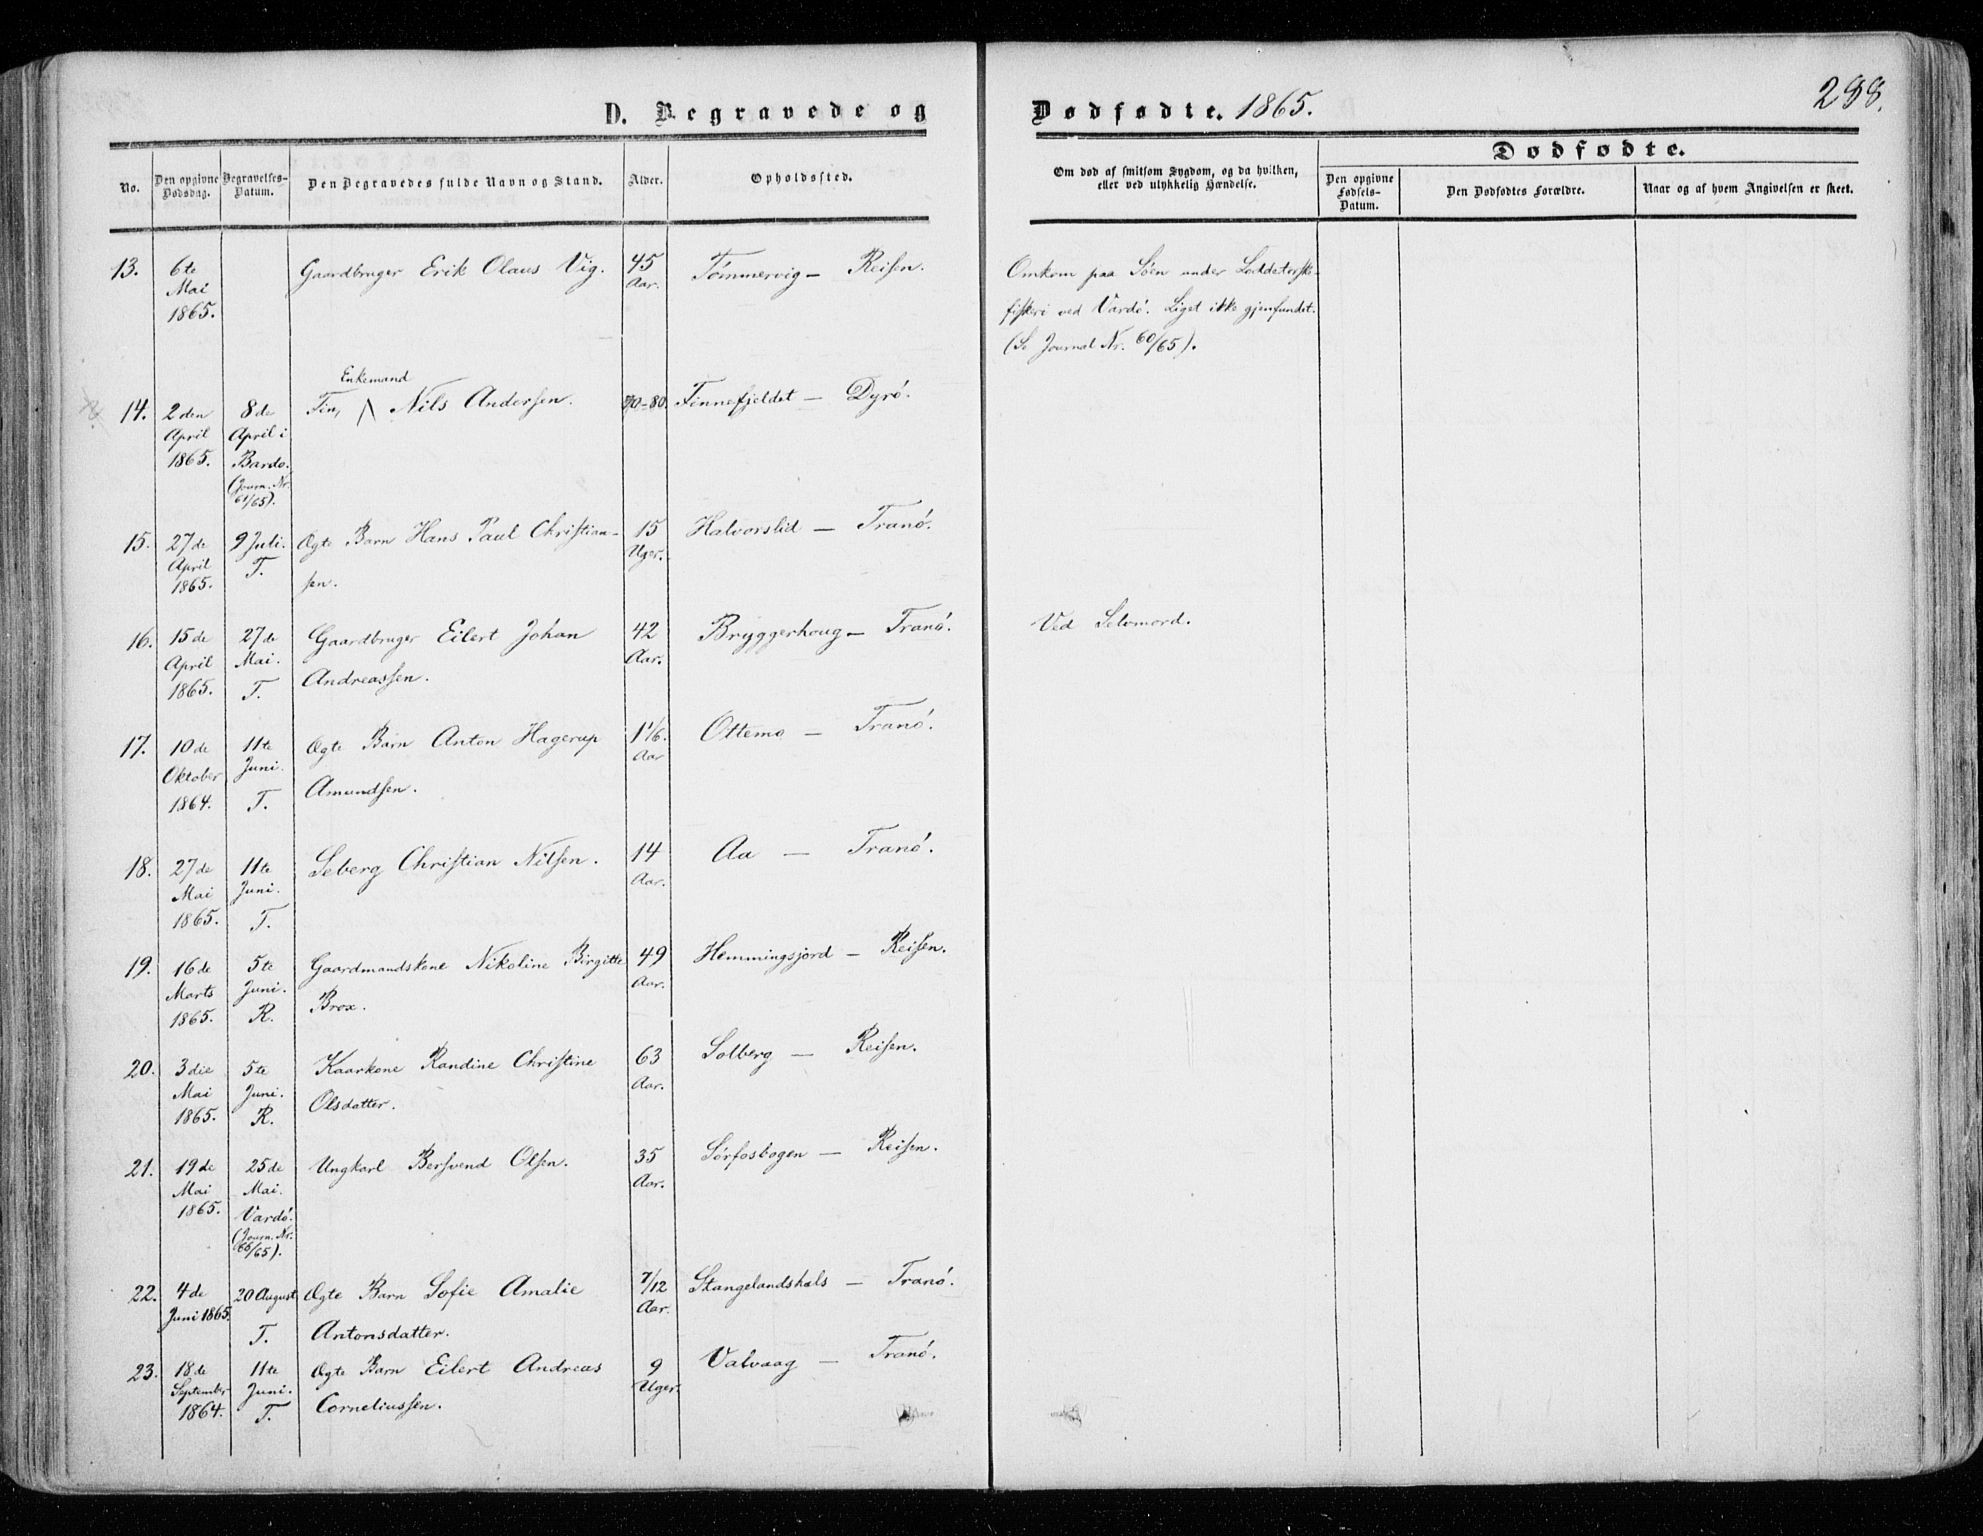 D. Begravede og
Dødfødte. 1865.
288.
No.
Den opgivne Dødsdag.
Begravelses-Datum.
Den Begravedes fulde Navn og Stand.
Alder.
Opholdssted.
Om død af smitsom Sygdom, og da hvilken,
eller ved ulykkelig Hændelse.
Dødfødte.
Den opgivne Fødsels-Datum.
Den Dødfødtes Forældre.
Naar og af hvem Angivelsen er skeet.
13. 6te Mai 1865. Gaardbruger Erik Olaus Vig. 45 Aar. Tømmervig — Reisen.
Omkom paa Søen under Loddetorsk-
fiskeri ved Vardø. Liget ikke gjenfundet.
(Se Journal Nr. 60/65).
14. 2den April 1865. 8de April i Bardo. (Journ. Nr. 61/65). Fin, Enkemand Nils Andersen. 70-80. Finnefjeldet — Dyrø.
15. 27de April 1865. 9 Juli. T. Ægte Barn Hans Paul Christian-
sen. 15 Uger. Halvorslid — Tranø.
16. 15de April 1865. 27de Mai. T. Gaardbruger Eilert Johan
Andreassen. 42 Aar. Bryggerhoug — Tranø.
Ved Selvmord.
17. 10de Oktober 1864. 11te Juni. T. Ægte Barn Anton Hagerup
Amundsen. 1 1/6. Aar Ottemo — Tranø.
18. 27de Mai 1865. 11te Juni. T. Seberg Christian Nilsen. 14 Aar. Aa — Tranø.
19. 16de Marts 1865. 5te Juni. R. Gaardmandskone Nikoline Birgitte
Brox. 49 Aar. Hemmingsjord — Reisen.
20. 3die Mai 1865. 5te Juni. R. Kaarkone Randine Christine
Olsdatter. 63 Aar. Solberg — Reisen.
21. 19de Mai 1865. 25de Mai. Vardø. (Journ. Nr. 66/65). Ungkarl Bersvend Olsen. 35 Aar. Sørfosbogen — Reisen.
22. 4de Juni 1865. 20 August T. Ægte Barn Sofie Amalie
Antonsdatter. 7/12 Aar. Stangelandshals — Tranø.
23. 18de September 1864. 11te Juni. T. Ægte Barn Eilert Andreas
Corneliussen. 9 Uger. Valvaag — Tranø.